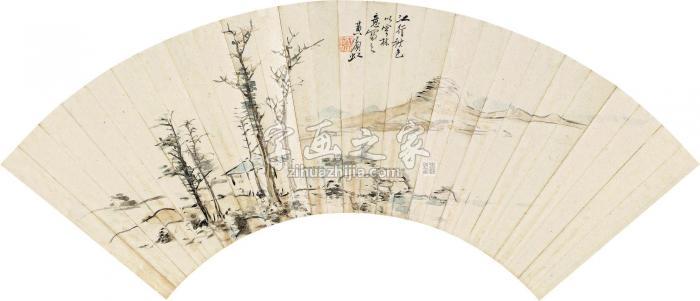 江行秋色
以雲林
意寫之
黃賓虹
字画之家
zihuazhijia.com